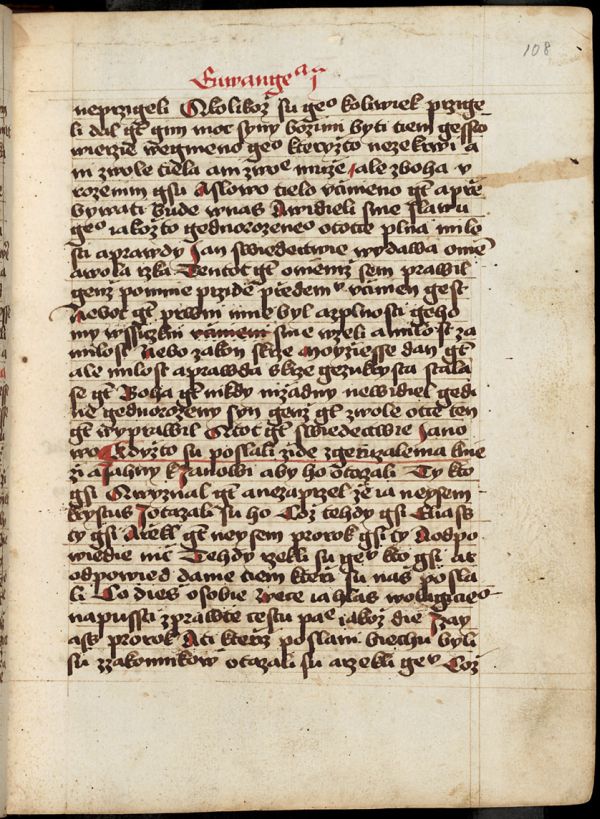 108
Ewange
neprzigeli A kolikoz su geͦ koliwiek przige
li dal gt gim moc syny bozimi byti tiem gessto
wierzie wegmeno geͦ kteryzto nezekrwi a
ni zwole tiela ani zwoͤ muze ale zboha v
rozenini gsu A slowo tielo vczineno gt a prze
bywati bude wnas A widieli sme slawu
geͦ iakozto gednorozeneͦ ototcze plna milo
sti aprawdy Jan swiedectwie wydawa o
awola rzka Tentot gt omemz sem prawil
genz pomnie przide przedem vczinen gest
Nebot gt prwni mne byl azplnosti geho
my wssiczkni vczineni sme wzeli a milost za
milost Nebo zakon skrze Moyziesse dan gt
ale milost aprawda skrze gezukrysta stala
se gt Boha gt nikdy nizadny newidiel gedi
ne gednorozeny syn genz gt zwole otcze ten
gt wyprawil A tot gt swiedectwie Jano
wo Kdyzto su poslali zide zgeruzalema knie
zi a Jahny k Janowi aby ho otazali Ty kto
gsi A wyznal gt anezaprzel ze ia neysem
krystus J otazali su ho Coz tehdy gsi Eliass
ty gsi A rzekl gt neysem prorok gsi ty A odpo
wiedie nic Tehdy rzekli su geͧ kto gsi at
odpowied dame tiem kterzi su nas posla
li Co dies osobie Wece ia hlas wolagicieͦ
napussti zprawte cestu paͤ iakoz die Jzay
ass prorok A ti kterziz poslani biechu byli
su zzakonnikow otazali su arzekli geͧ Coz